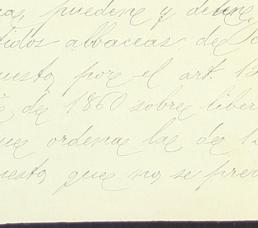 pueden y deben
albaceas de
puesto por el art. 13
de 1860 sobre liber
que ordena las de 1
puesto que no, se pre